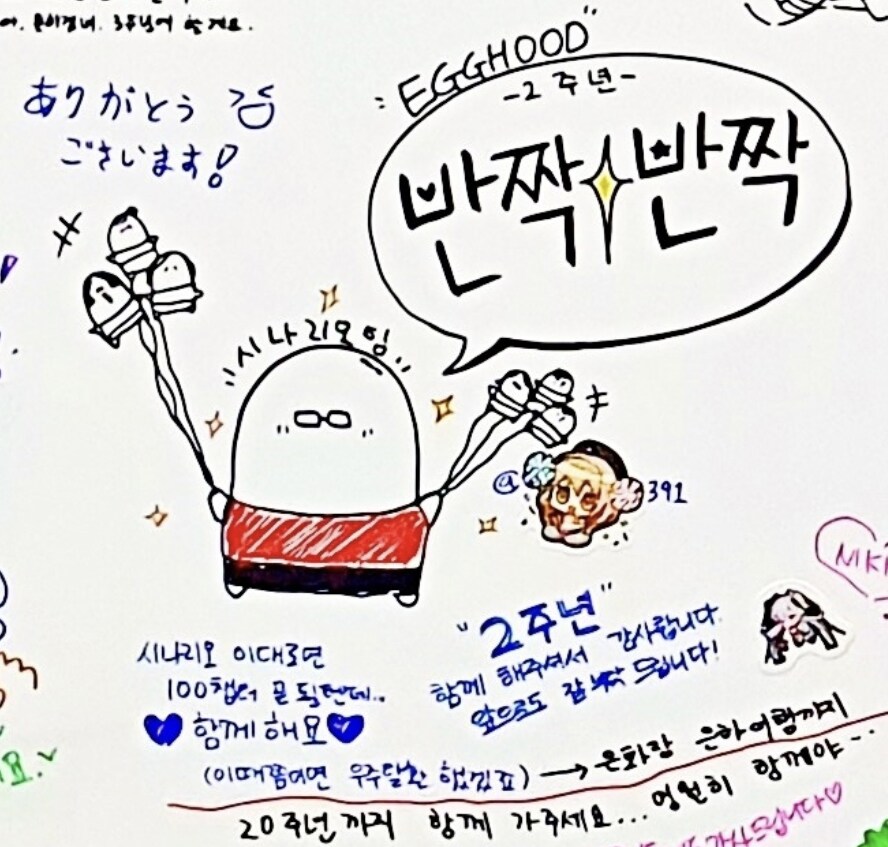 ありがとう
ございます!
"EGGHOOD"
-2주년-
반짝 반짝
"시나리오팀"
@
391
NIK
시나리오 이대로면
100챕터 끝 될텐데..
함께 해요
(이때쯤이면 우주탈환 했겠죠)
"2주년"
함께 해주셔서 감사합니다
앞으로도 잘 부탁 드립니다!
은하여행까지
20주년까지 함께 가주세요... 영원히 함께야..